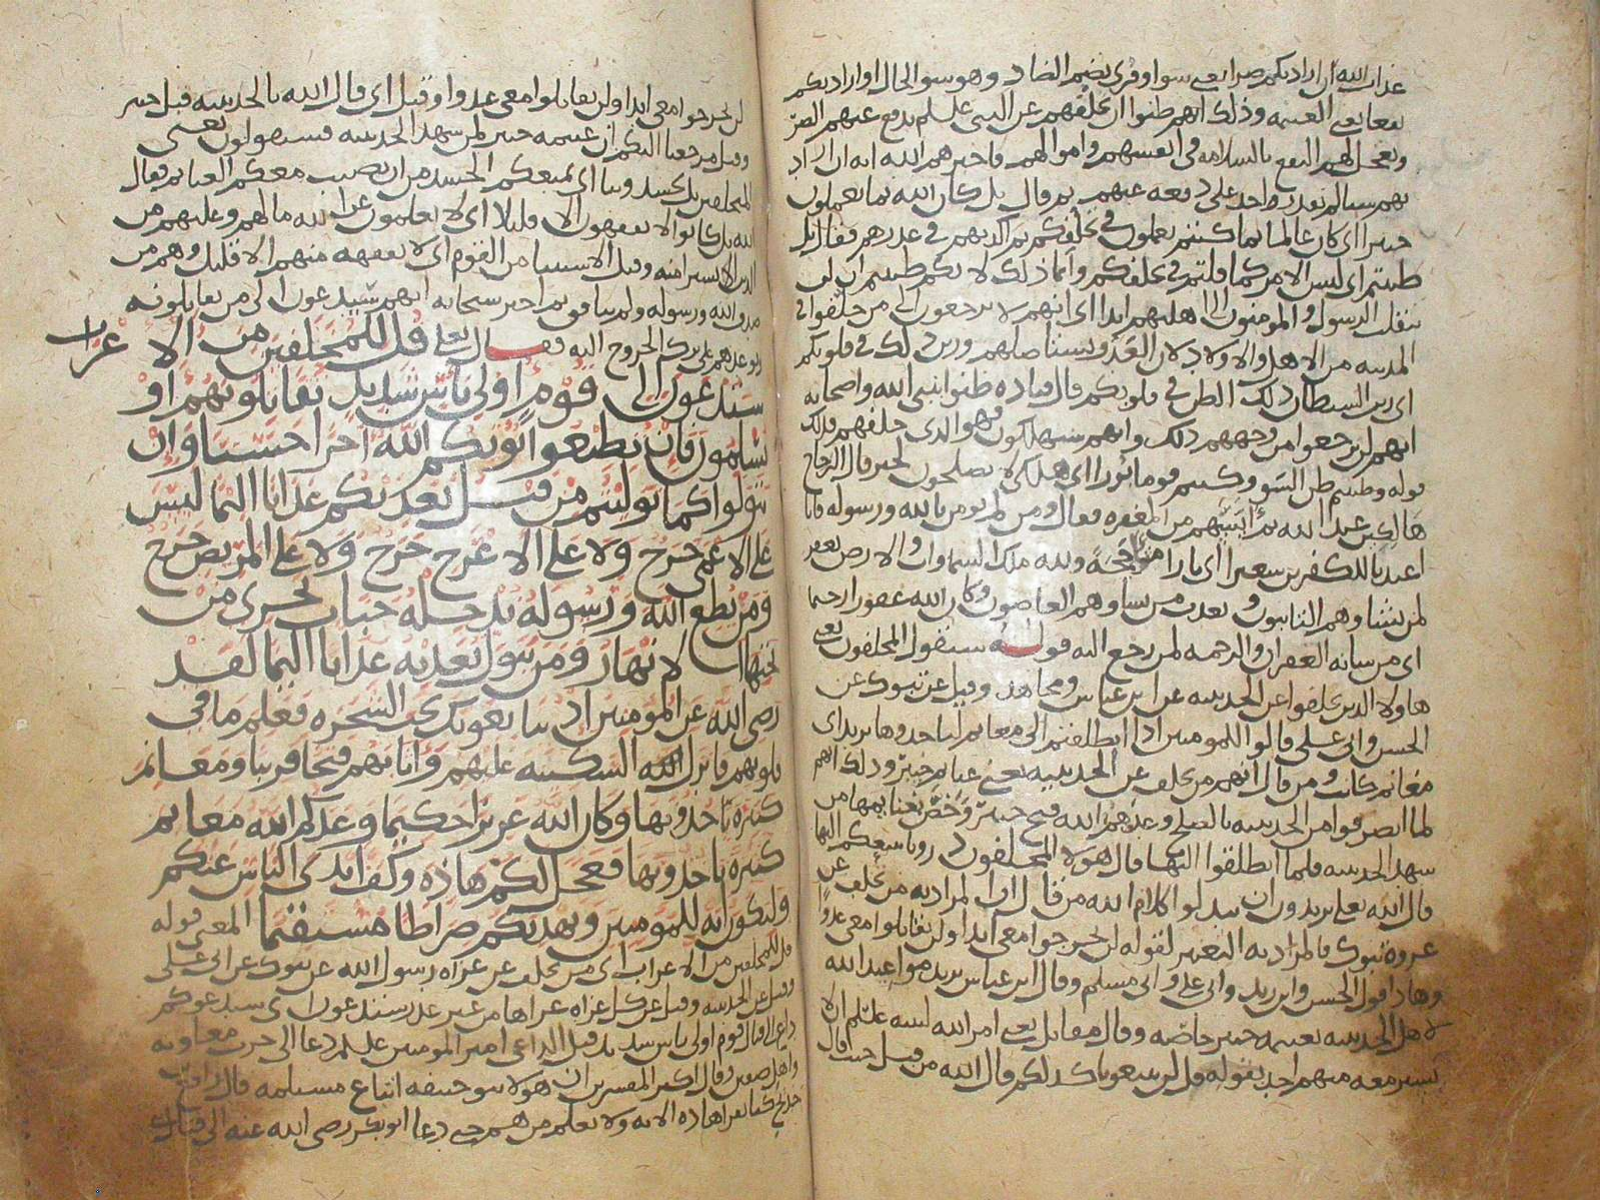 عذاب الله ان اراد بكم ضرا يعني سوا وقرى بضم الضاد وهو سو الحال او اراد بكم
نفعا يعني الغنيمه وذلك انهم ظنوا ان تخلفهم عن النبي علسلم يدفع عنهم الضر
ويعجل لهم النفع بالسلامه في انفسهم واموالهم فاخبرهم الله انه ان اراد
بهم شيا لم يقدر احد على دفعه عنهم ثم قال بل كان الله بما تعملون
خبيرا اي كان عالما بما كنتم تعملون في تخلفكم ثم اكذبهم في عذرهم فقال بل
ظننتم اي ليس الامر كما قلتم في تخلفكم وانما ذلك لانكم ظننتم ان لن
ينقلب الرسول والمومنون الى اهليهم ابدا اي انهم لا يرجعون الى من خلفوا في
المدينه من الاهل والاولاد لان العدو يستاصلهم وزين ذلك في قلوبكم
اي زين الشيطان ذلك الظن في قلوبكم قال قتاده ظنوا بنبي الله واصحابه
انهم لن يرجعوا من وجههم ذلك وانهم سيهلكون فهو الذي خلفهم فذلك
قوله وظننتم ظن السو وكنتم قوما بورا اي هلكى لا يصلحون لخير قال الزجاج
هالكين عند الله ثم المغفره فقال ومن لم يومن بالله ورسوله فانا
اعتدنا للكفرين سعيرا اي نارا ولله ملك السماوات والارض يغفر
لمن يشا وهم التائبون ويعذب من يشا وهم العاصون وكان الله غفورا رحيما
اي من شانه الغفران والرحمه لمن رجع اليه قوله سيقول المخلفون يعني
هاولا الذين تخلفوا عن الحديبيه عن ابن عباس ومجاهد وقيل عن تبوك عن
الحسن وابي علي قالوا للمومنين اذا انطلقتم الى مغانم لتاخذوها يريد اي
مغانم كانت ومن قال انهم من تخلف عن الحديبيه يعني غنائم خيبر وذلك انهم
لما انصرفوا من الحديبيه بالصلح وعدهم الله فتح خيبر وخص بغنايمها من
شهد الحديبيه فلما انطلقوا اليها قال هولا المخلفون ذرونا نتبعكم اليها
قال الله تعلى يريدون ان يبدلوا كلام الله من قال ان المراد به من تخلف عن
غزوة تبوك فالمراد به التغيير لقوله لن تخرجوا معي ابدا ولن تقاتلوا معي عدوا
وهاذا قول الحسن وابن زيد وابي علي وابي مسلم وقال ابن عباس يريد مواعيد الله
لاهل الحديبيه بغنيمه خيبر خاصه وقال مقاتل يعني امر الله لنبيه علتلم ان لا
يسير معه منهم احد بقوله قل لن تتبعونا كذلكم قال الله من قبل حيث قال
لن تخرجوا معي ابدا ولن تقاتلوا معي عدوا وقيل اي قال الله بالحديبيه قبل خيبر
وقبل مرجعنا اليكم ان غنيمه خيبر لمن شهد الحديبيه فسيقولون يعني
المخلفين بل تحسدوننا اي يمنعكم الحسد من ان نصيب معكم الغنايم فقال
الله بل كانوا لا يفقهون الا قليلا اي لا يعلمون عن الله ما لهم وعليهم من
الدين الا يسيرا منه وقيل الاستثنا من القوم اي لا يفقهه منهم الا قليل وهم من
صدق الله ورسوله ولم ينافق ثم اخبر سبحانه انهم سيدعون الى من يقاتلونه
الخروج اليه فقـــال تعلى قل للمخلفين من الاعراب
ستدعون الى قوم اولي باس شديد تقاتلونهم او
يسلمون فان تطيعوا يوتكم الله اجرا حسنا وان
تتولوا كما توليتم من قبل يعذبكم عذابا اليما ليس
على الاعمى حرج ولا على الاعرج حرج ولا على المريض حرج
ومن يطع الله ورسوله يدخله جنات تجري من
تحتها الانهار ومن يتول يعذبه عذابا اليما لقد
رضي الله عن المومنين اذ يبايعونك تحت الشجره فعلم ما في
قلوبهم فانزل الله السكينه عليهم واثابهم فتحا قريبا ومغانم
كثيره ياخذونها وكان الله عزيزا حكيما وعدكم الله مغانم
كثيره تاخذونها فعجل لكم هاذه وكف ايدي الناس عنكم
ولتكون ايه للمومنين ويهديكم صراطا مستقيما المعنى قوله
قل للمخلفين من الاعراب اي من تخلف عن غزاه رسول الله عن تبوك عن ابي علي
وقيل عن الحديبيه وقيل عن كل غزاه غزاها من غير عذر ستدعون اي سيدعوكم
داعي الى قتال قوم اولي باس شديد قيل الداعي امير المومنين علسلم دعا الى حرب معاويه
واهل صفين وقال اكثر المفسرين ان هولا بنو حنيفه اتباع مسيلمه قال رافع بن
خديج كنا نقرا هاذه الايه ولا نعلم من هم حتى دعا ابو بكر رضي الله عنه الى قتال